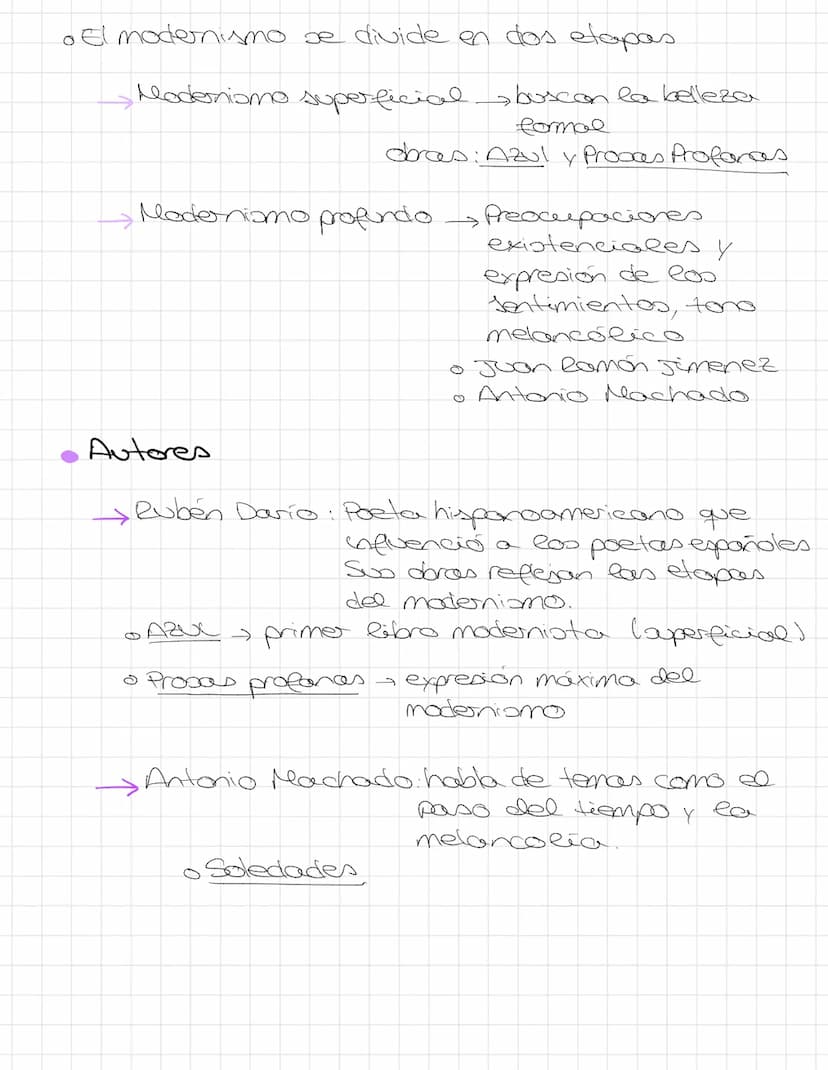 El modernismo se divide en dos etapas
→ Modernismo superficial → buscan la belleza
formal
obras: AZUl y Prosas Profanas
→ Modernismo profundo → Preocupaciones
existenciales y
expresión de los
sentimientos, tono
melancólico
Juan Ramón Jimenez
Antonio Machado
Autores
→ Rubén Darío: Poeta hispanoamericano que
influenció a los poetas españoles
Sus obras reflejan las etapas
del modernismo.
AZUL → primer libro modernista (superficial)
Prosas profanas → expresión máxima del
modernismo
→ Antonio Machado: habla de temas como el
paso del tiempo y la
melancolía.
Soledades